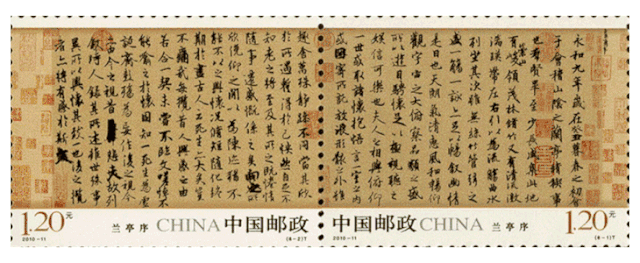 永和九年歲在癸丑暮春之初會
于會稽山陰之蘭亭脩稧事
也羣賢畢至少長咸集此地
有崇山峻領茂林脩竹又有清流激
湍暎帶左右引以為流觴曲水
列坐其次雖無絲竹管弦之
盛一觴一詠亦足以暢敘幽情
是日也天朗氣清惠風和暢仰
觀宇宙之大俯察品類之盛
所以遊目騁懷足以極視聽之
娛信可樂也夫人之相與俯仰
一世或取諸懷抱悟言一室之內
或因寄所託放浪形骸之外雖
趣舍萬殊靜躁不同當其欣
於所遇蹔得於己怏然自足不
知老之將至及其所之既惓情
隨事遷感慨係之矣向之所
欣俛仰之閒以為陳迹猶不
能不以之興懷況脩短隨化終
期於盡古人云死生亦大矣豈
不痛哉每攬昔人興感之由
若合一契未嘗不臨文嗟悼不
能喻之於懷固知一死生為虛
誕齊彭殤為妄作後之視今
亦由今之視昔悲夫故列
敘時人錄其所述雖世殊事
異所以興懷其致一也後之攬
者亦將有感於斯文
1.20元 兰亭序 CHINA 中国邮政
2010-11 (6-2)T
中国邮政 CHINA 兰亭序 1.20元
2010-11 (6-1)T